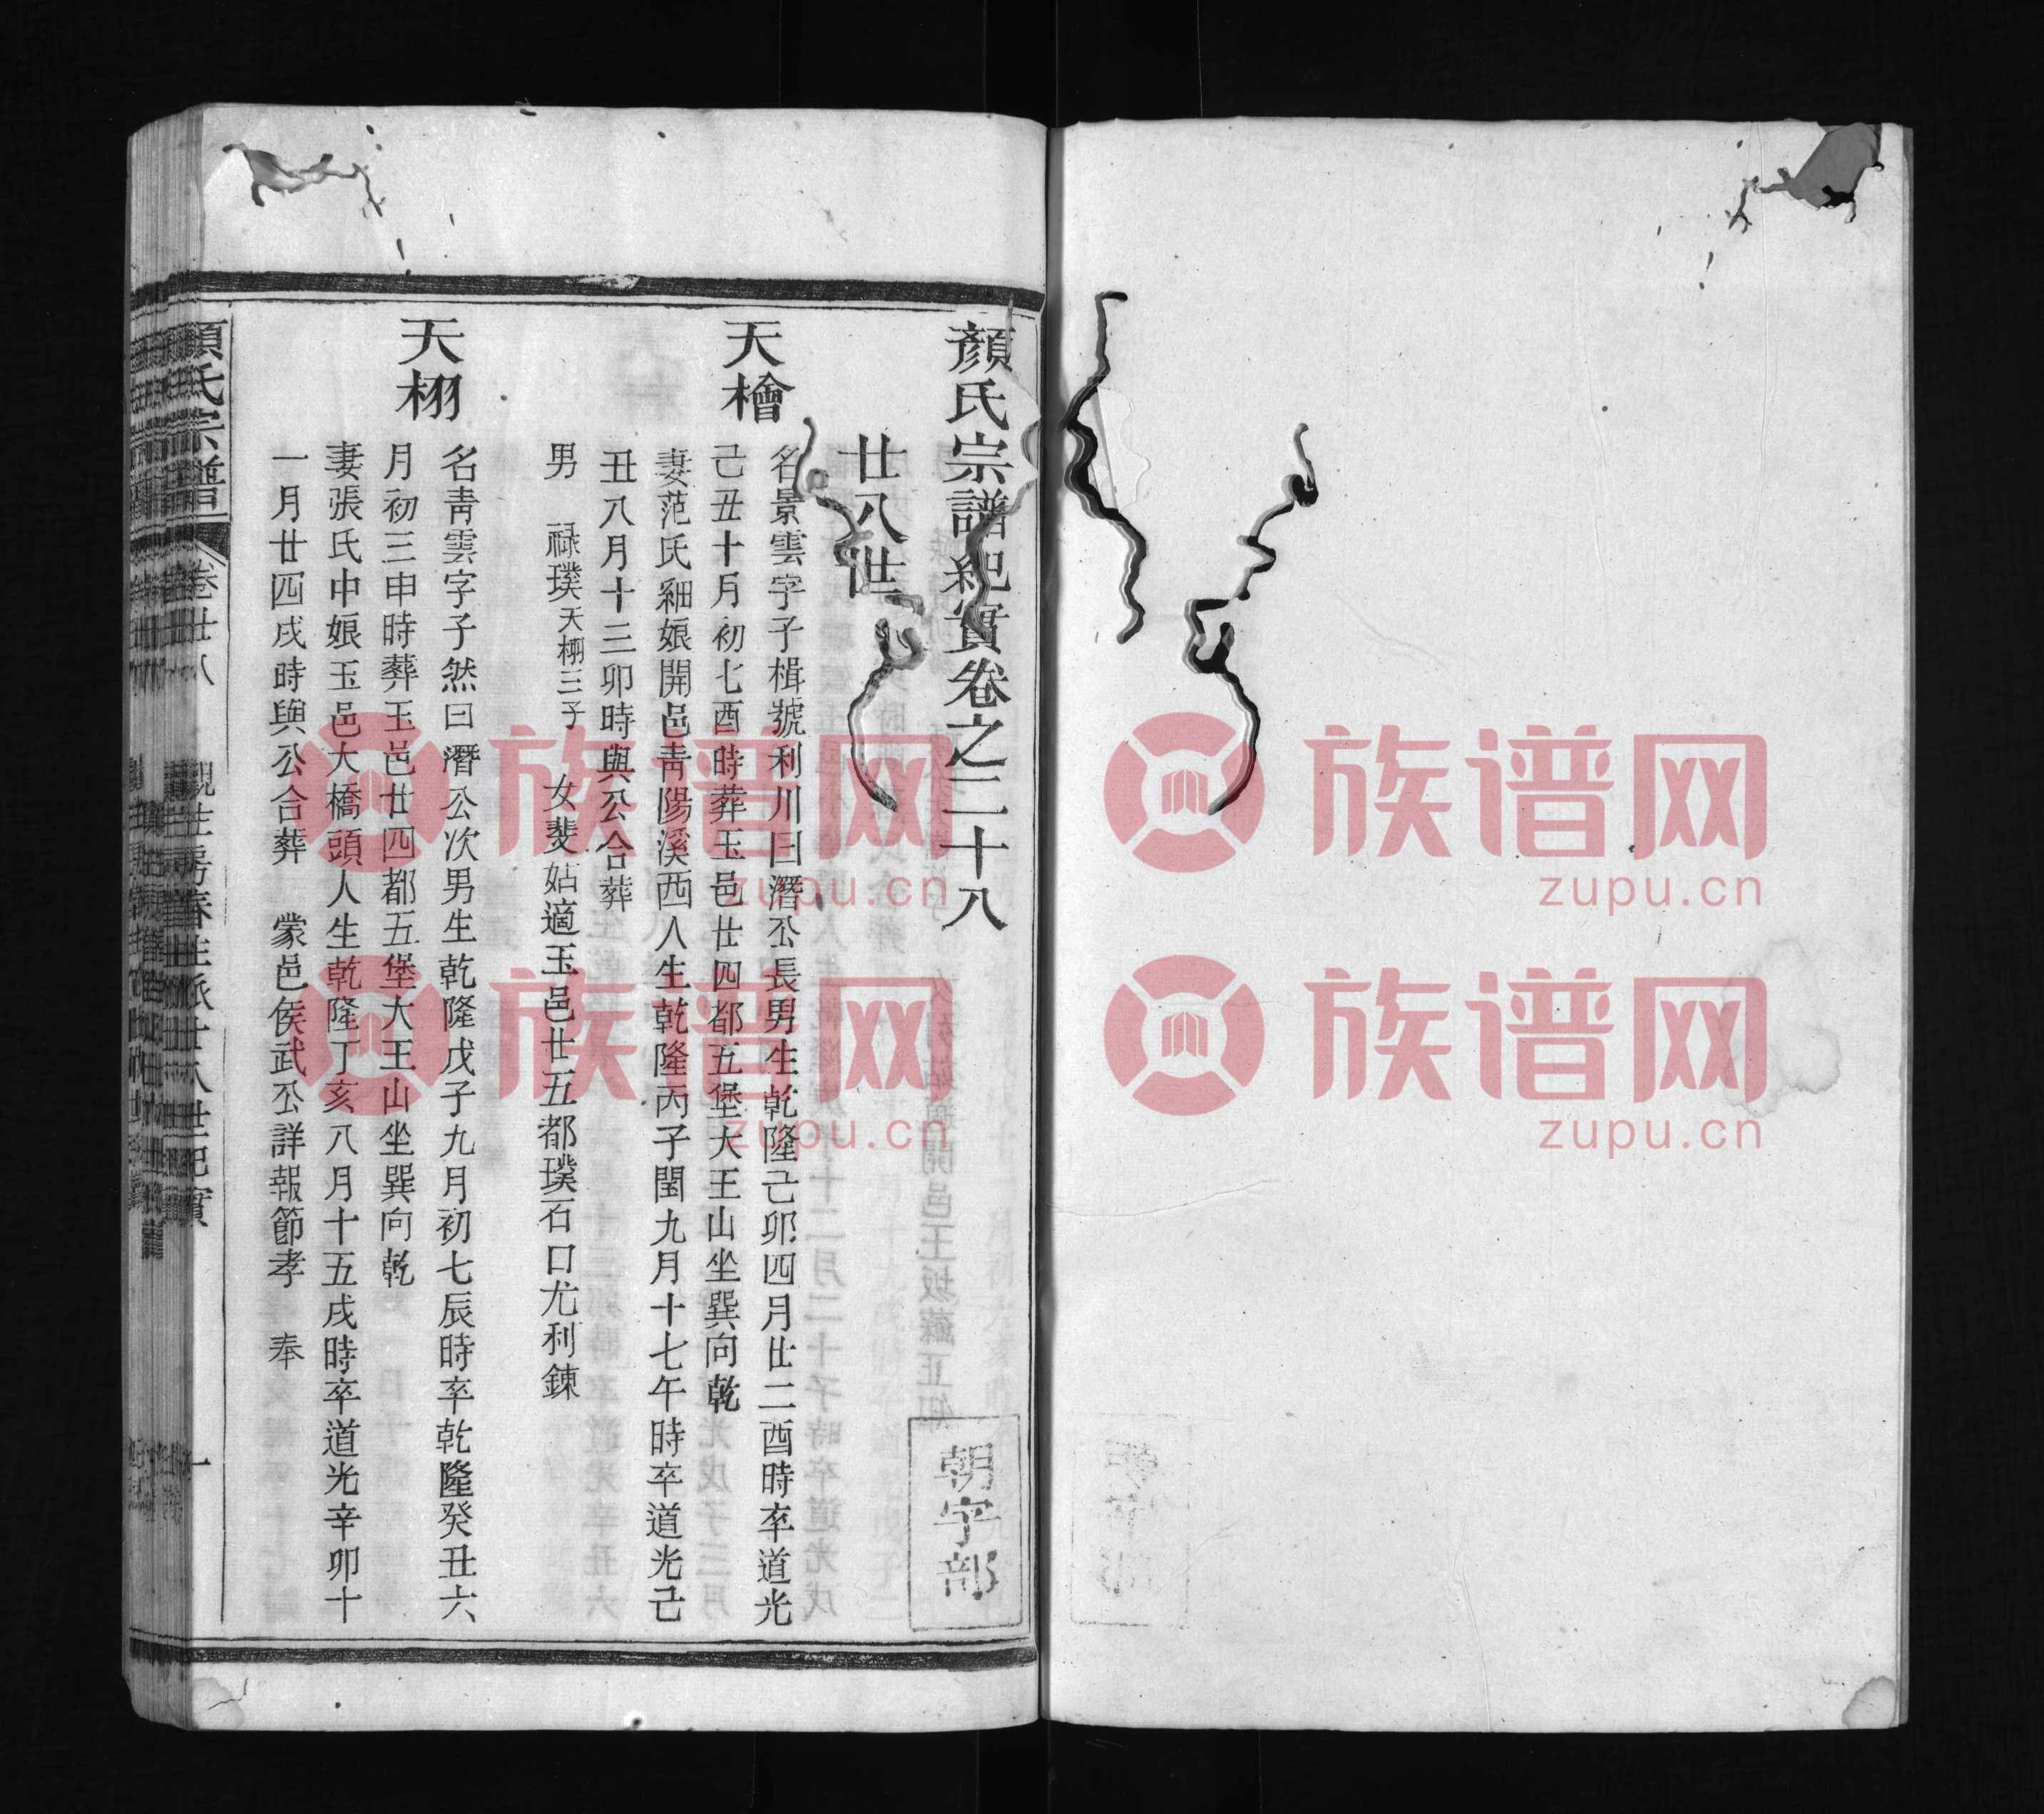 顏氏宗譜紀實卷之二十八
朝字部
廿八世
天檜
名景雲字子楫號利川曰潛公長男生乾隆己卯四月廿二酉時卒道光
己丑十月初七酉時葬玉邑廿四都五堡大王山坐巽向乾
妻范氏細娘開邑青陽溪西人生乾隆丙子閏九月十七午時卒道光己
丑八月十三卯時與公合葬
男 祿璞天栩三子 女斐姑適玉邑廿五都璞石口尤利鍊
天栩
名青雲字子然曰潛公次男生乾隆戊子九月初七辰時卒乾隆癸丑六
月初三申時葬玉邑廿四都五堡大王山坐巽向乾
妻張氏中娘玉邑大橋頭人生乾隆丁亥八月十五戌時卒道光辛卯十
一月廿四戌時與公合葬 蒙邑侯武公詳報節孝 奉
顏氏宗譜 卷廿八 觀生房春生派廿八世紀實 一
族谱网
zupu.cn
族谱网
zupu.cn
族谱网
zupu.cn
族谱网
zupu.cn